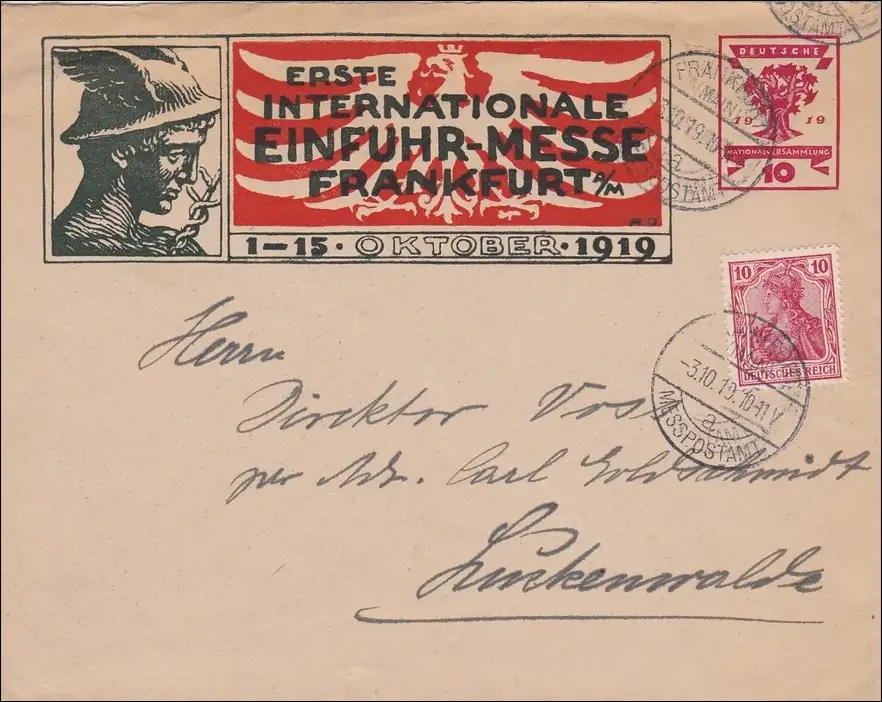 ERSTE
INTERNATIONALE
EINFUHR-MESSE
FRANKFURT A/M
1-15 · OKTOBER · 1919
DEUTSCHE
19 19
NATIONALVERSAMMLUNG
10
POSTAMT
FRANKFURT
(MAIN)
3.10.19.10-11
a
MESSPOSTAMT
10 10
DEUTSCHES REICH
-3.10.19.10-11V
a
MESSPOSTAMT
Herrn
Direktor Vos
per Adr. Carl Goldschmidt
Luckenwalde